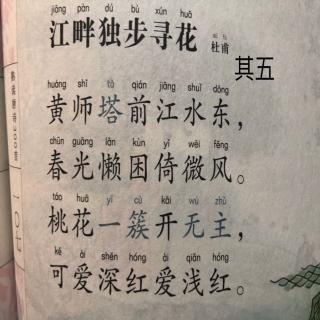 jiāng pàn dú bù xún huā
江畔独步寻花 杜甫
其五
huáng shī tǎ qián jiāng shuǐ dōng
黄师塔前江水东，
chūn guāng lǎn kùn yǐ wēi fēng
春光懒困倚微风。
táo huā yí cù kāi wú zhǔ
桃花一簇开无主，
kě ài shēn hóng ài qiǎn hóng
可爱深红爱浅红。
一〇七